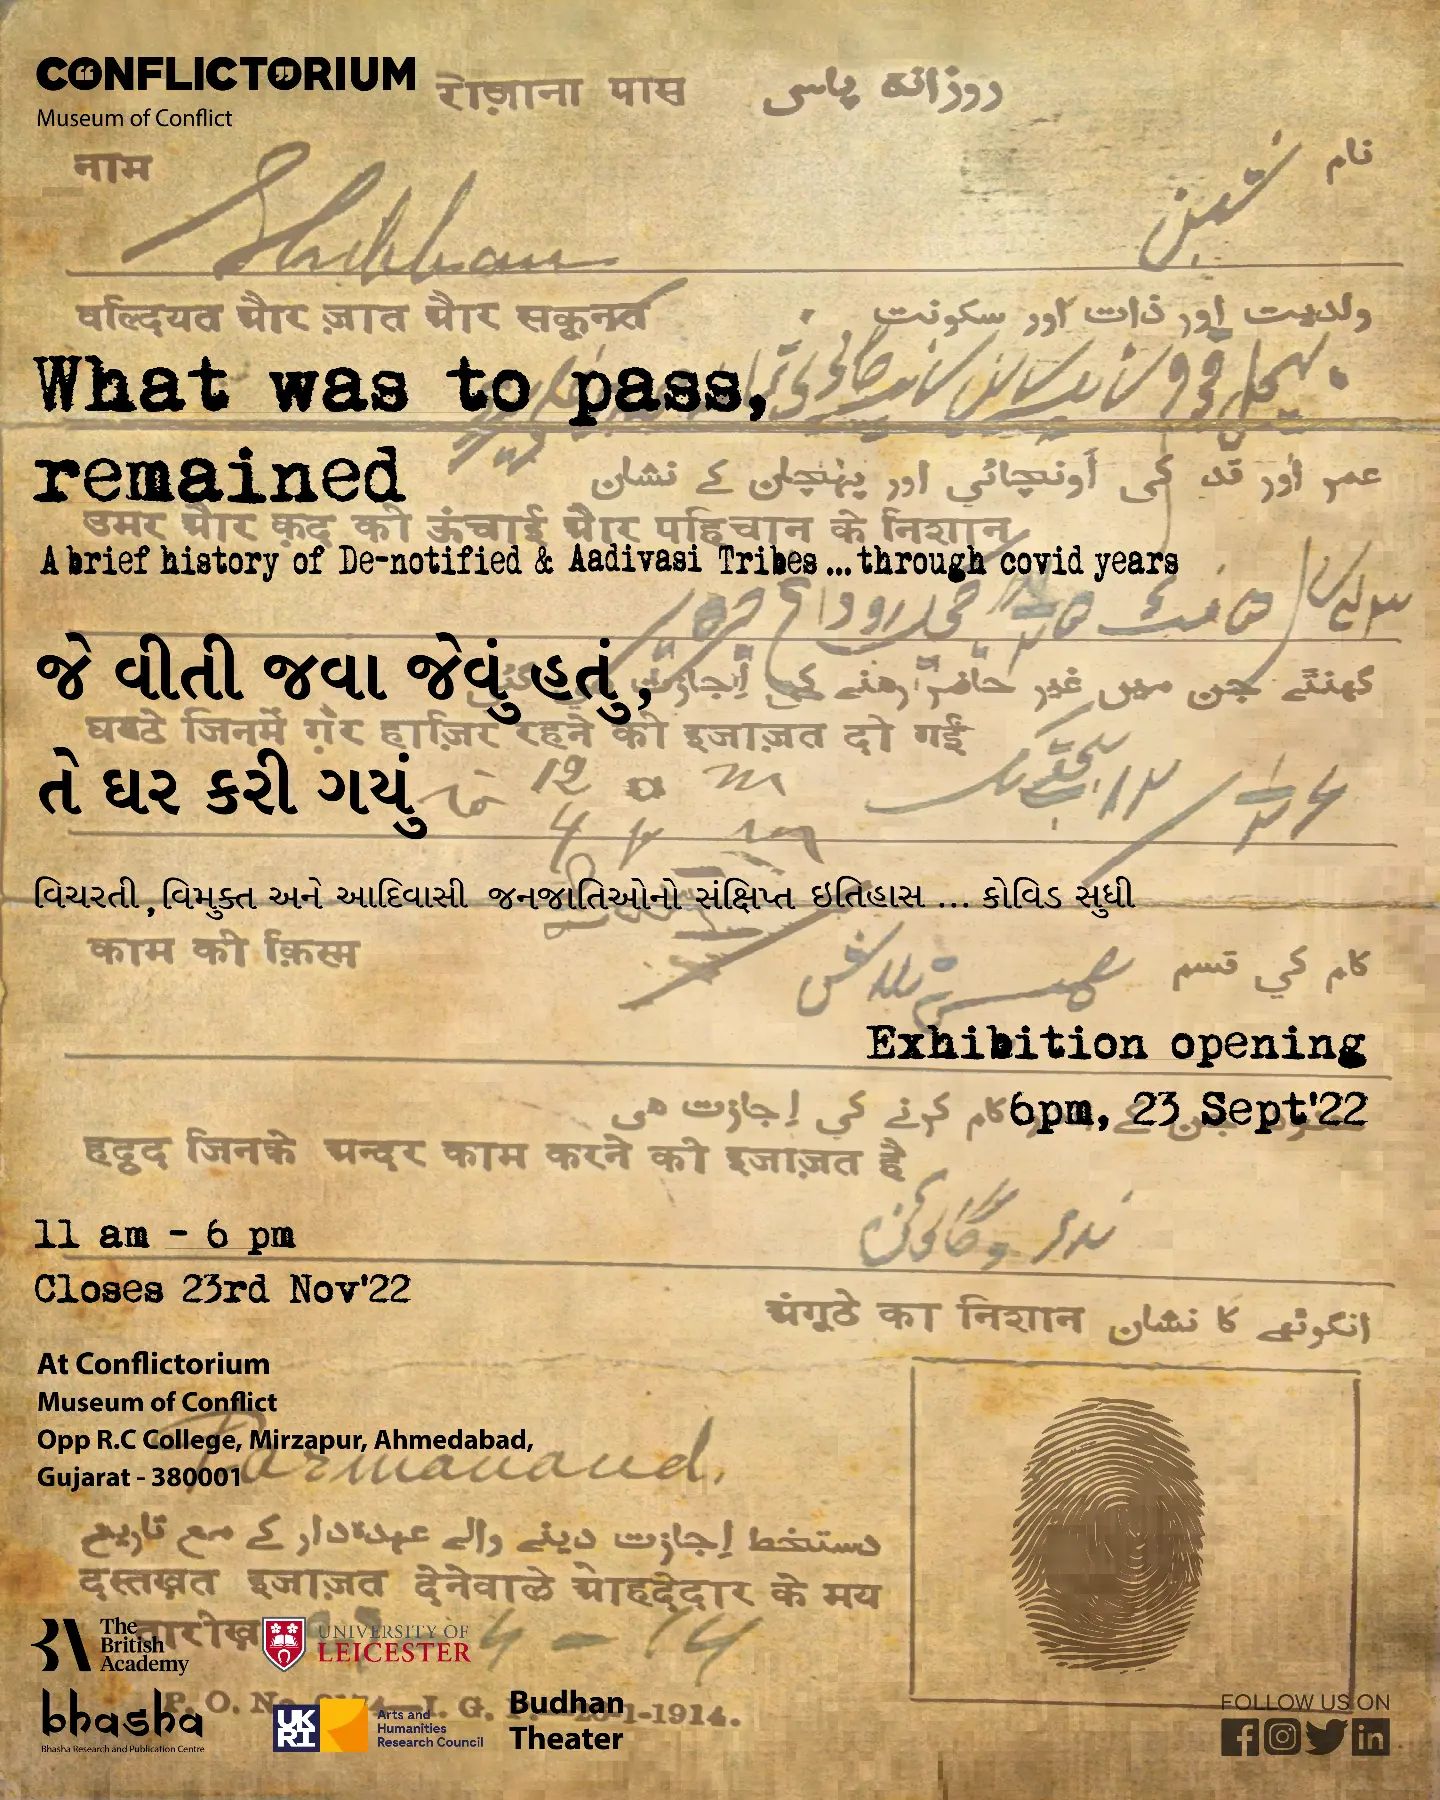 CONFLICTORIUM
Museum of Conflict
रोज़ाना पास
روزانہ پاس
नाम
نام
वल्दियत और ज़ात और सकूनत
ولدیت اور ذات اور سکونت
What was to pass,
remained
عمر اور قد کی اونچائی اور پہچان کے نشان
उमर और कद की ऊंचाई और पहिचान के निशान
A brief history of De-notified & Aadivasi Tribes ... through covid years
જે વીતી જવા જેવું હતું,
گھنٹے جن میں غیر حاضر رہنے کی اجازت
घण्टे जिनमें ग़ैर हाज़िर रहने की इजाज़त दी गई
તે ઘર કરી ગયું
વિચરતી, વિમુક્ત અને આદિવાસી જનજાતિઓનો સંક્ષિપ્ત ઇતિહાસ ... કોવિડ સુધી
काम की क़िस्म
کام کی قسم
Exhibition opening
6pm, 23 Sept'22
کام کرنے کی اجازت ہی
जिनके अन्दर काम करने की इजाज़त है
11 am - 6 pm
Closes 23rd Nov'22
अंगूठे का निशान
انگوٹھے کا نشان
At Conflictorium
Museum of Conflict
Opp R.C College, Mirzapur, Ahmedabad,
Gujarat - 380001
Parmanand.
دستخط اجازت دینے والے عہدہ دار کے مع تاریخ
दस्तख़त इजाज़त देनेवाले ओहदेदार के मय
तारीख़
The British Academy
UNIVERSITY OF LEICESTER
bhasha
Bhasha Research and Publication Centre
UKRI
Arts and Humanities Research Council
Budhan Theater
FOLLOW US ON